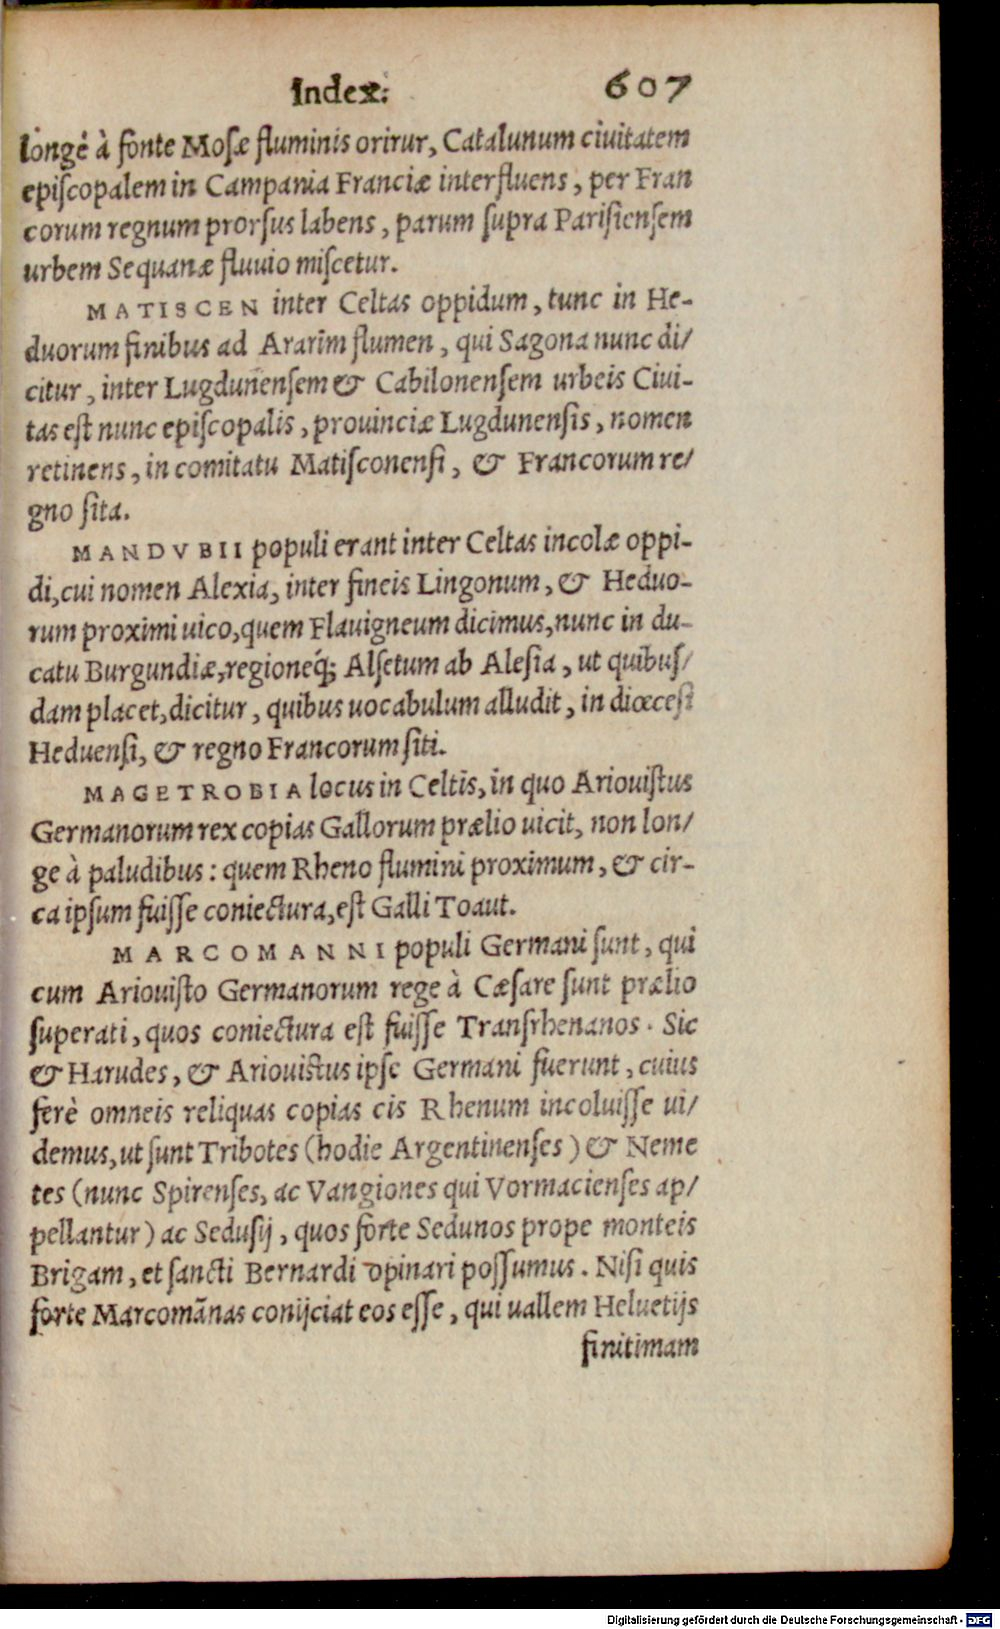 Index. 607
longè à fonte Mosæ fluminis orirur, Catalunum ciuitatem
episcopalem in Campania Franciæ interfluens, per Fran
corum regnum prorsus labens, parum supra Parisiensem
urbem Sequanæ fluuio miscetur.
MATISCEN inter Celtas oppidum, tunc in He-
duorum finibus ad Ararim flumen, qui Sagona nunc di/
citur, inter Lugdunensem & Cabilonensem urbeis Ciui-
tas est nunc episcopalis, prouinciæ Lugdunensis, nomen
retinens, in comitatu Matisconensi, & Francorum re/
gno sita.
MANDVBII populi erant inter Celtas incolæ oppi-
di, cui nomen Alexia, inter fineis Lingonum, & Heduo-
rum proximi uico, quem Flauigneum dicimus, nunc in du-
catu Burgundiæ, regioneq́; Alsetum ab Alesia, ut quibus/
dam placet, dicitur, quibus uocabulum alludit, in diœcesi
Heduensi, & regno Francorum siti.
MAGETROBIA locus in Celtis, in quo Ariouistus
Germanorum rex copias Gallorum prælio uicit, non lon/
ge à paludibus: quem Rheno flumini proximum, & cir-
ca ipsum fuisse coniectura, est Galli Toaut.
MARCOMANNI populi Germani sunt, qui
cum Ariouisto Germanorum rege à Cæsare sunt prælio
superati, quos coniectura est fuisse Transrhenanos. Sic
& Harudes, & Ariouistus ipse Germani fuerunt, cuius
ferè omneis reliquas copias cis Rhenum incoluisse ui/
demus, ut sunt Tribotes (hodie Argentinenses) & Neme
tes (nunc Spirenses, ac Vangiones qui Vormacienses ap/
pellantur) ac Sedusij, quos forte Sedunos prope monteis
Brigam, et sancti Bernardi opinari possumus. Nisi quis
forte Marcomãnas conijciat eos esse, qui uallem Heluetijs
finitimam
Digitalisierung gefördert durch die Deutsche Forschungsgemeinschaft - DFG